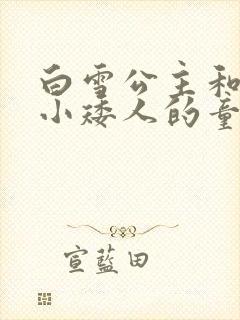 白雪公主和
小矮人的童
宣蓝田